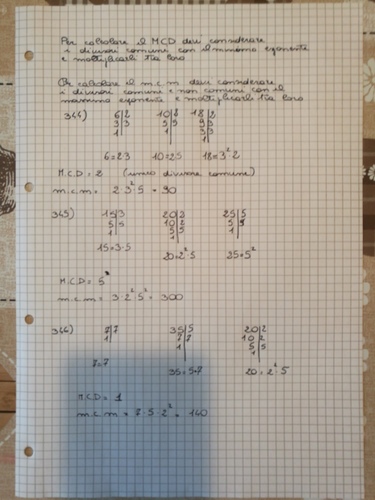 Per calcolare il MCD devi considerare
i divisori comuni con il minimo esponente
e moltiplicarli tra loro
Per calcolare il m.c.m devi considerare
i divisori comuni e non comuni con il
massimo esponente e moltiplicarli tra loro
344) 6|2 10|2 18|2
3|3 5|5 9|3
1| 1| 3|3
1|
6=2·3 10=2·5 18=3²·2
M.C.D = 2 (unico divisore comune)
m.c.m = 2·3²·5 = 90
345) 15|3 20|2 25|5
5|5 10|2 5|5
1| 5|5 1|
1|
15=3·5 20=2²·5 25=5²
M.C.D = 5
m.c.m = 3·2²·5² = 300
346) 7|7 35|5 20|2
1| 7|7 10|2
1| 5|5
1|
7=7 35=5·7 20=2²·5
M.C.D = 1
m.c.m = 7·5·2² = 140